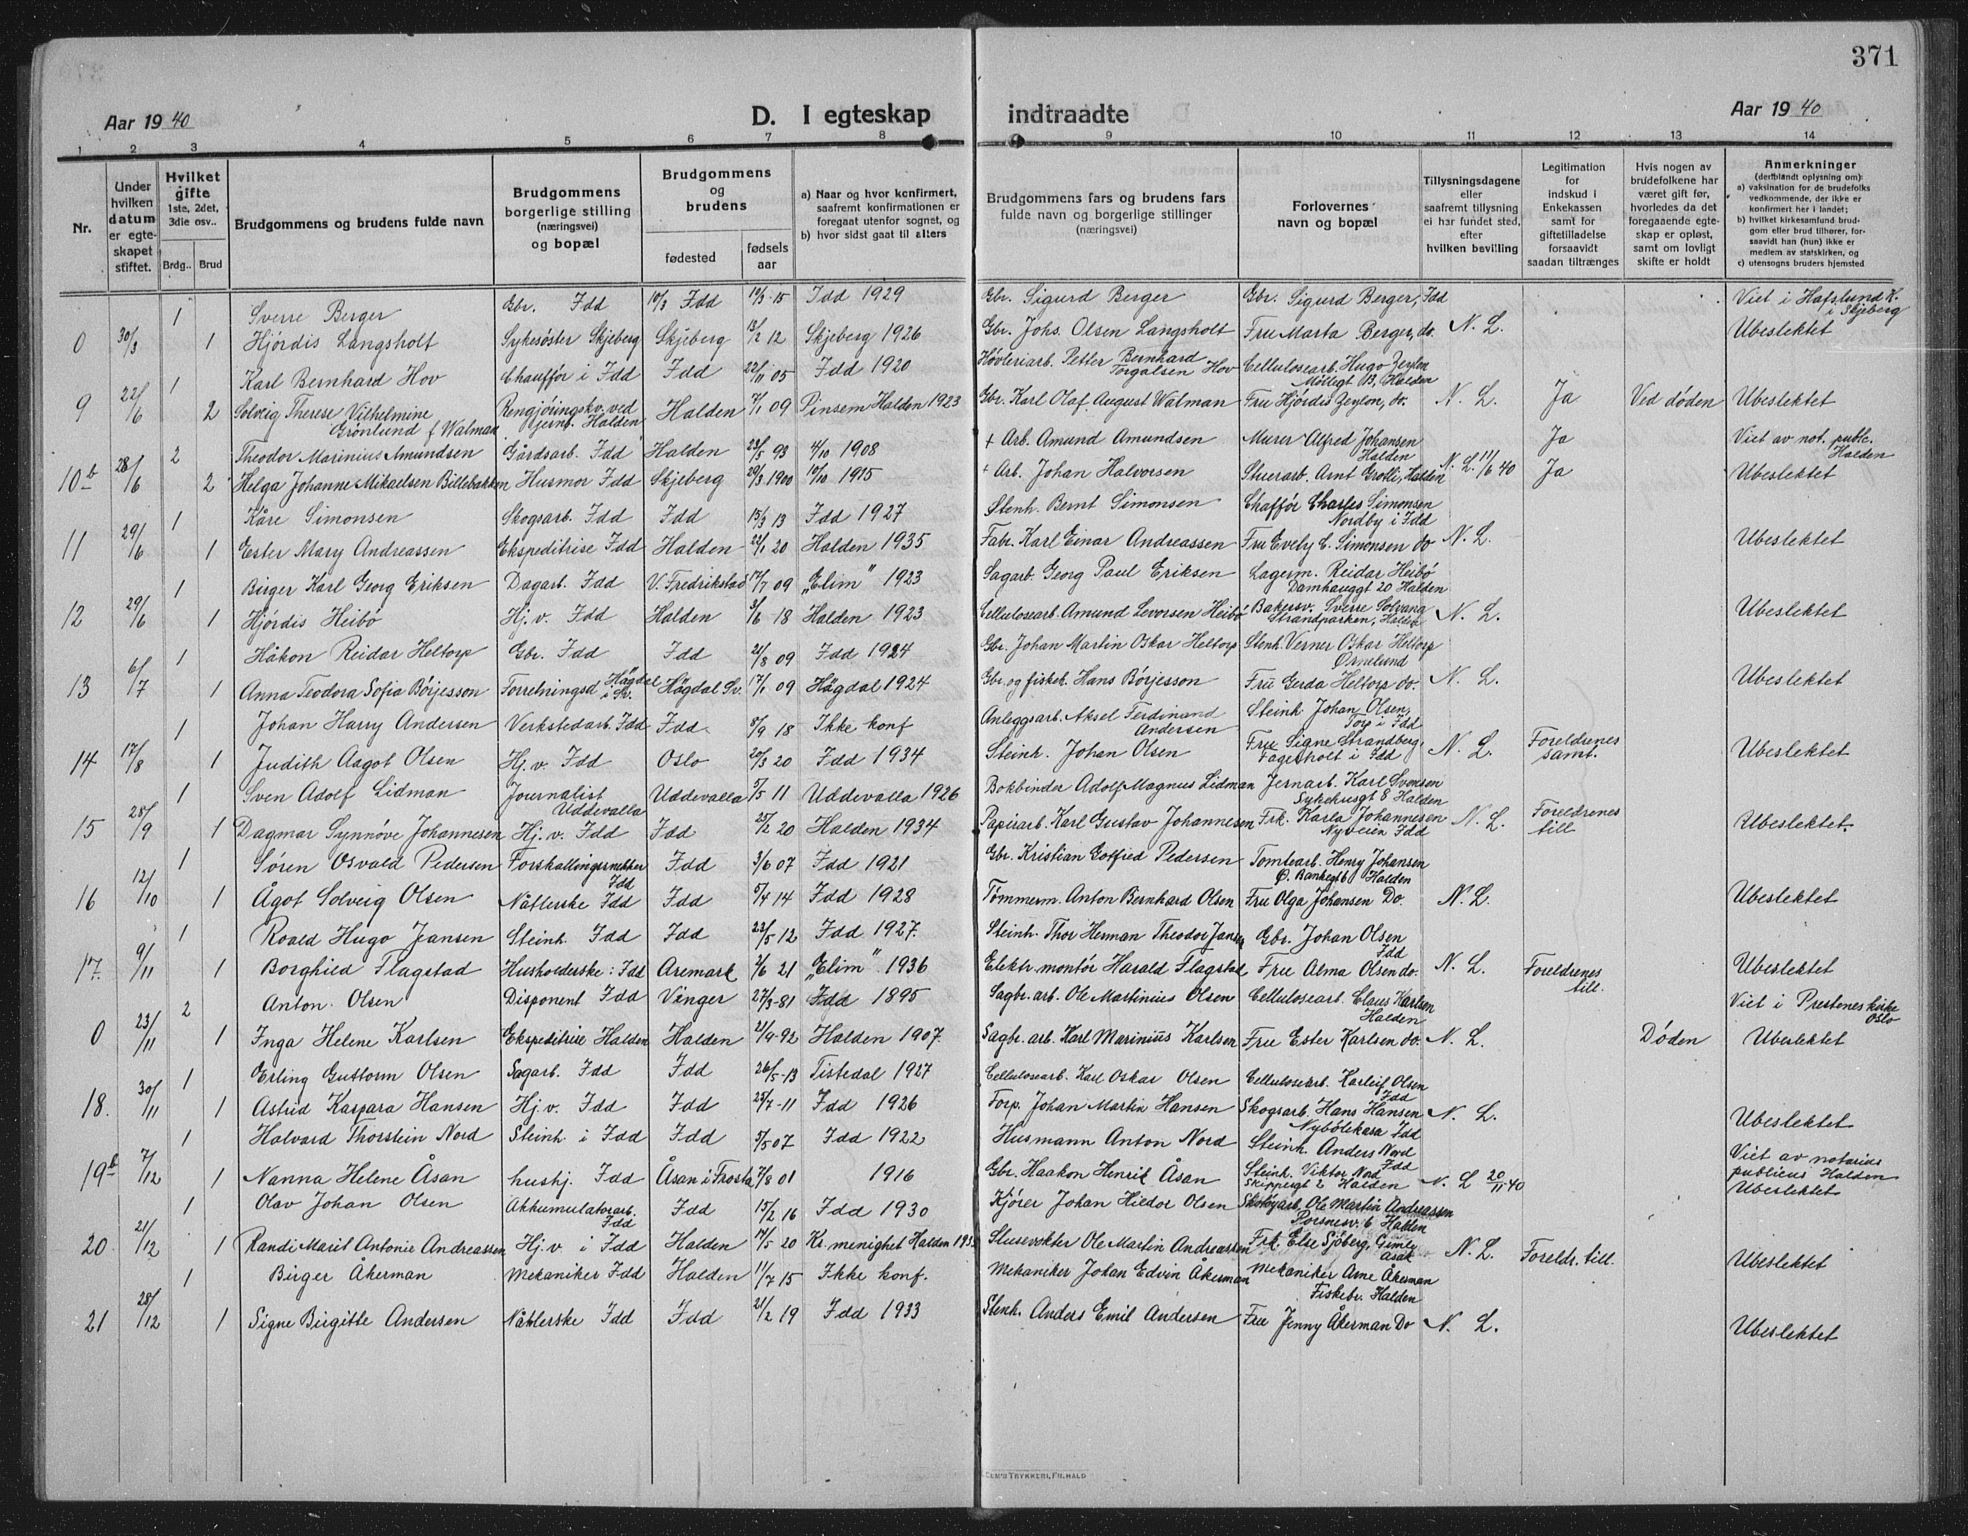 371
Aar 1940
D. I egteskap indtraadte
Aar 1940
1 2 3 4 5 6 7 8 9 10 11 12 13 14
Nr.
Under hvilken datum er egteskapet stiftet.
Hvilket gifte 1ste, 2det, 3die osv..
Brdg.. Brud
Brudgommens og brudens fulde navn
Brudgommens borgerlige stilling (næringsvei) og bopæl
Brudgommens og brudens
fødested
fødsels aar
a) Naar og hvor konfirmert, saafremt konfirmationen er foregaat utenfor sognet, og
b) hvor sidst gaat til alters
Brudgommens fars og brudens fars fulde navn og borgerlige stillinger (næringsvei)
Forlovernes navn og bopæl
Tillysningsdagene eller saafremt tillysning ei har fundet sted, efter hvilken bevilling
Legitimation for indskud i Enkekassen samt for giftetilladelse forsaavidt saadan tiltrænges
Hvis nogen av brudefolkene har været gift før, hvorledes da det foregaaende egteskap er opløst, samt om lovligt skifte er holdt
Anmerkninger (deriblandt oplysning om):
a) vaksination for de brudefolks vedkommende, der ikke er konfirmert her i landet;
b) hvilket kirkesamfund brudgom eller brud tilhører, forsaavidt han (hun) ikke er medlem av statskirken, og
c) utensogns bruders hjemsted
1 Sverre Berger Gbr. Idd 10/3 Idd 10/3-15 Idd 1929 Gbr. Sigurd Berger Gbr. Sigurd Berger, Idd Viet i Hafslund K. i Skjeberg
0 30/3 1 Hjördis Langsholt Sykesöster Skjeberg Skjeberg 13/2 12 Skjeberg 1926 Gbr. Johs. Olsen Langsholt Fru Marta Berger, do. N. L. Ubeslektet
1 Karl Bernhard Hov Chauffør i Idd Idd 22/11 05 Idd 1920 Høvleriarb. Petter Bernhard Torgalsen Hov Cellulosearb. Hugo Zeylon Møllegt 13, Halden
9 22/6 2 Solveig Therese Vilhelmine Grönlund f Walman Rengjøringskv. ved jernb. Halden Halden 7/1 09 Pinsem Halden 1923 Gbr. Karl Olaf August Walman Fru Hjördis Zeylon, do. N. L. Ja Ved døden Ubeslektet
2 Theodor Marinius Amundsen Gårdsarb. Idd Halden 23/5 93 4/10 1908 + Arb. Amund Amundsen Murer Alfred Johansen Halden Ja Viet av not. public. Halden
10b 28/6 2 Helga Johanne Mikaelsen Billebakken Husmor Idd Skjeberg 29/3 1900 10/10 1915 + Arb. Johan Halvorsen Stuerarb. Arnt Grotli, Halden N. L. 11/6 40 Ja Ubeslektet
1 Kåre Simonsen Skogsarb. Idd Idd 15/3 13 Idd 1927 Stenh. Bernt Simonsen Chafför Charles Simonsen Nordby i Idd
11 29/6 1 Ester Mary Andreassen Ekspeditrise Idd Halden 22/1 20 Halden 1935 Fabr. Karl Einar Andreassen Fru Evely C. Simonsen do N. L. Ubeslektet
1 Birger Karl Georg Eriksen Dagarb. Idd V. Fredrikstad 17/7 09 „Elim" 1923 Sagarb. Georg Paul Eriksen Lagerm. Reidar Heibö Damhauggt 20 Halden
12 29/6 1 Hjördis Heibö Hj. v. Idd Halden 3/6 18 Halden 1923 Cellulosearb. Amund Levorsen Heibö Bakersv. Sverre Solvang Strandparken, Halden N. L. Ubeslektet
1 Håkon Reidar Heltorp Gbr. Idd Idd 21/8 09 Idd 1924 Gbr. Johan Martin Oskar Heltorp Stenh. Verner Oskar Heltorp Örmlund
13 6/7 1 Anna Teodora Sofia Börjesson Forretningsd Högdal i Sv. Högdal Sv. 17/1 09 Högdal 1924 Gbr. og fisker Hans Börjesson Fru Gerda Heltorp do. N. L. Ubeslektet
1 Johan Harry Andersen Verkstedarb. Idd Idd 5/9 18 Ikke konf Anleggsarb. Aksel Ferdinand Andersen Steinh. Johan Olsen, Torp i Idd
14 17/8 1 Judith Aagot Olsen Hj. v. Idd Oslo 20/3 20 Idd 1934 Steinh. Johan Olsen Fru Signe Strandberg, Fagerholt i Idd N. L. Foreldrenes samt. Ubeslektet
1 Sven Adolf Lidman Journalist Uddevalla Uddevalla 5/5 11 Uddevalla 1926 Bokbinder Adolf Magnus Lidman Jernarb. Karl Svensen Sykehusgt 8 Halden
15 28/9 1 Dagmar Synnöve Johannesen Hj. v. Idd Idd 25/2 20 Halden 1934 Papirarb. Karl Gustav Johannesen Frk. Karla Johannesen Nyveien Idd N. L. Foreldrenes till Ubeslektet.
1 Sören Osvald Pedersen Forskallingssnekker Idd Idd 3/6 07 Idd 1921 Gbr. Kristian Gotfied Pedersen Tomtearb. Henry Johansen Ø. Bankegt 6 Halden
16 12/10 1 Ågot Solveig Olsen Nåtlerske Idd Idd 5/4 14 Idd 1928 Tømmerm. Anton Bernhard Olsen Fru Olga Johansen Do. N. L. Ubeslektet
1 Roald Hugo Jansen Steinh. Idd Idd 22/5 12 Idd 1927. Steinh. Thor Herman Theodor Jansen Gbr. Johan Olsen Idd
17. 9/11 1 Borghild Flagstad Husholderske: Idd Aremark 2/6 21 „Elim". 1936 Elektr. montör Harald Flagstad Fru Alma Olsen do. N. L. Foreldrenes till. Ubeslektet
2 Anton. Olsen Disponent Idd Vinger 27/3-81 Idd 1895 Sagbr. arb. Ole Martinius Olsen Cellulosearb. Claus Karlsen Halden Viet i Prestenes kirke Oslo
0 23/11 1 Inga Helene Karlsen Ekspeditrise Halden Halden 21/9-92 Halden 1907. Sagbr. arb. Karl Marinius Karlsen Fru Ester Karlsen do. N. L. Döden Ubeslektet
1 Erling Guttorm Olsen Sagarb. Idd Idd 26/5-13 Tistedal 1927 Cellulosearb. Karl Oskar Olsen Cellulosearb. Karleif Olsen Idd
18. 30/11 1 Astrid Kaspara Hansen Hj. v. Idd Idd 25/7-11 Idd 1926 Forp. Johan Martin Hansen Skogsarb. Hans Hansen Nybölekasa Idd N. L. Ubeslektet
1 Halvard Thorstein Nord Steinh. i Idd Idd 5/5 07 Idd 1922 Husmann Anton Nord Steinh. Anders Nord Idd Viet av notarius publicus Halden
19b 7/12 1 Nanna Helene Åsan hushj. Idd Åsan i Frosta 7/8 01 1916 Gbr. Haakon Henrik Åsan Steinh. Viktor Nord Skippergt 2 Halden N. L 20/11 40 Ubeslektet
1 Olav Johan Olsen Akkumulatorarb. Idd Idd 15/2 16 Idd 1930 Kjörer Johan Hildor Olsen Skotöyarb. Ole Martin Andreassen Porsnesv. 6 Halden
20 21/12 1 Randi Marit Antonie Andreassen Hj. v i Idd Halden 17/5 20 Kr. menighet Halden Slusevokter Ole Martin Andreassen Frk. Else Sjöberg, Gimle Asak N. L. Foreldr. till. Ubeslektet
1 Birger Akerman Mekaniker Idd Halden 11/7 15 Ikke konf. Mekaniker Johan Edvin Åkerman Mekaniker Arne Åkerman Fiskebr. Halden
21 28/12 1 Signe Birgitte Andersen Nåtlerske Idd Idd 21/2 19 Idd 1933 Stenh. Anders Emil Andersen Fru Jenny Åkerman Do N. L. Ubeslektet
TRYKKERI, FR.HALD